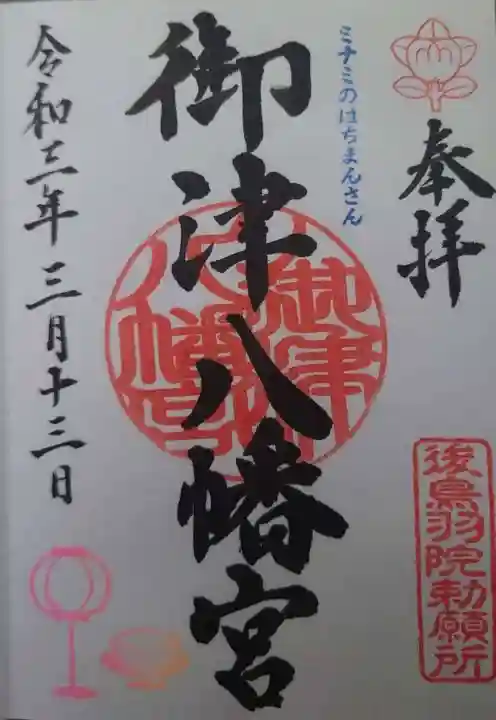 奉拝
後鳥羽院勅願所
ミナミのはちまんさん
御津八幡宮
御津八幡宮
令和三年三月十三日